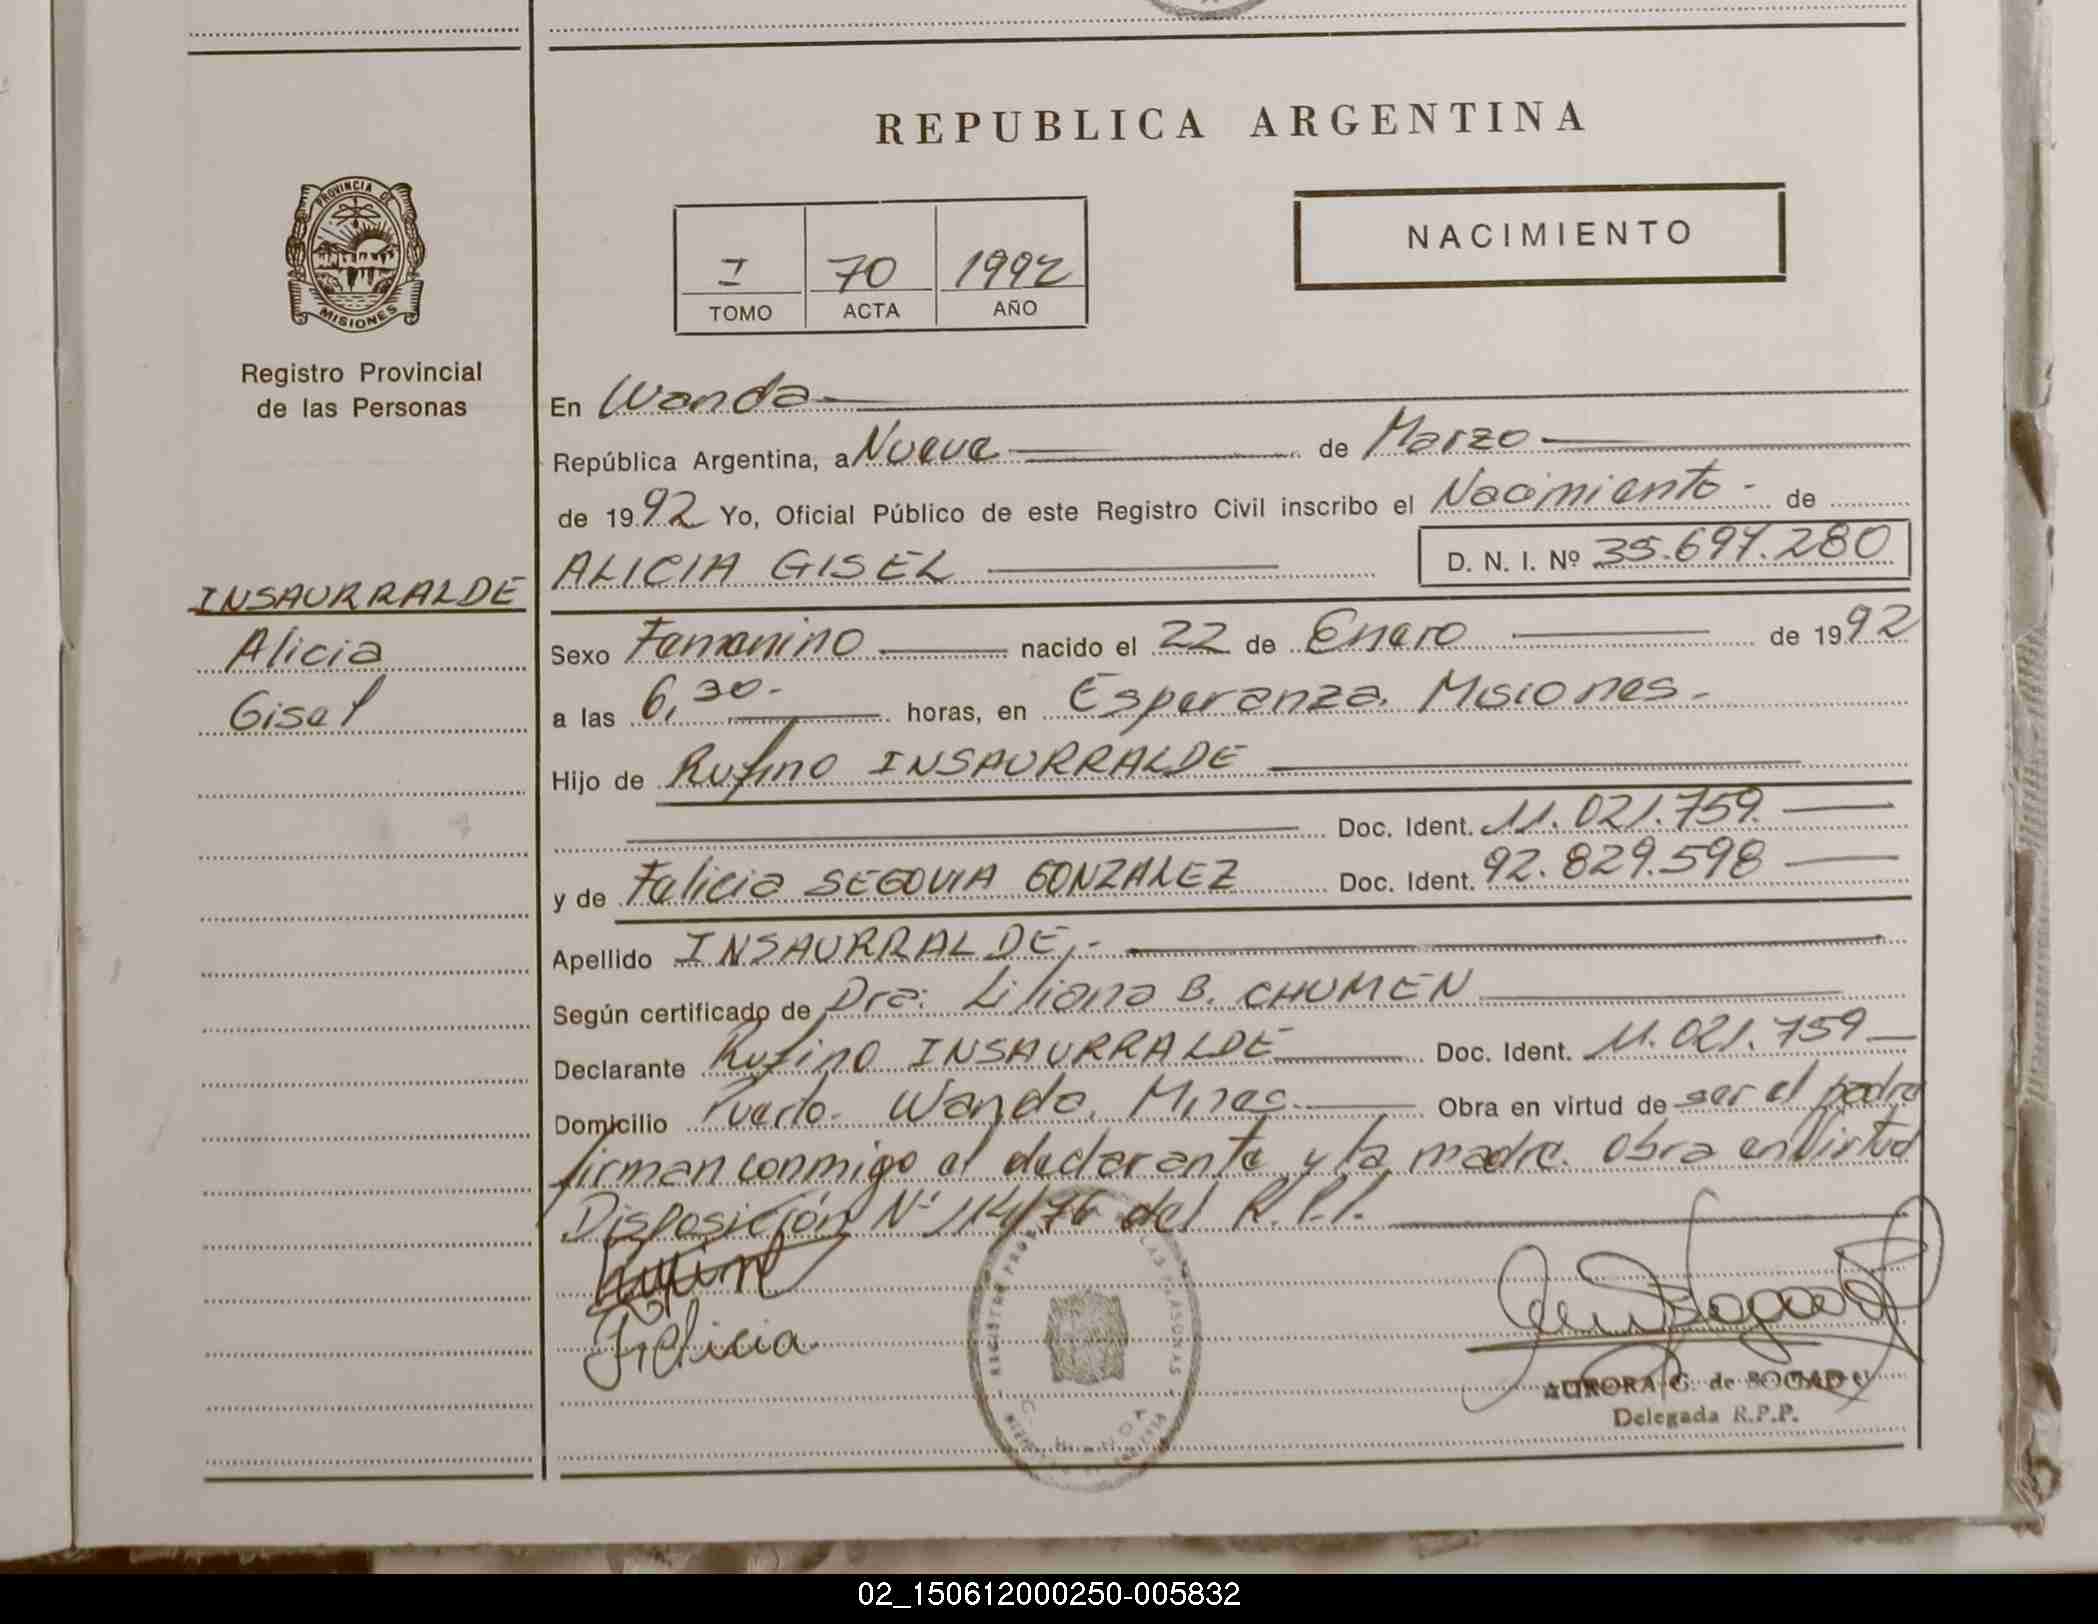 REPUBLICA ARGENTINA
PROVINCIA DE
MISIONES
Registro Provincial
de las Personas
INSAURRALDE
Alicia
Gisel
I 70 1992
TOMO ACTA AÑO
NACIMIENTO
En Wanda
República Argentina, a Nueve de Marzo
de 1992 Yo, Oficial Público de este Registro Civil inscribo el Nacimiento - de
ALICIA GISEL D. N. I. Nº 35.697.280
Sexo Femenino nacido el 22 de Enero de 1992
a las 6,30- horas, en Esperanza. Misiones.-
Hijo de Rufino INSAURRALDE
Doc. Ident. 11.021.759.
y de Felicia SEGOVIA GONZALEZ Doc. Ident. 92.829.598
Apellido INSAURRALDE.-
Según certificado de Dra: Liliana B. CHUMEN
Declarante Rufino INSAURRALDE Doc. Ident. 11.021.759
Domicilio Puerto Wanda. Mnes. Obra en virtud de ser el padre
firman conmigo el declarante y la madre. Obra en virtud
Disposición Nº 114/76 del R.P.P.
Felicia
AURORA G. de
Delegada R.P.P.
02_150612000250-005832